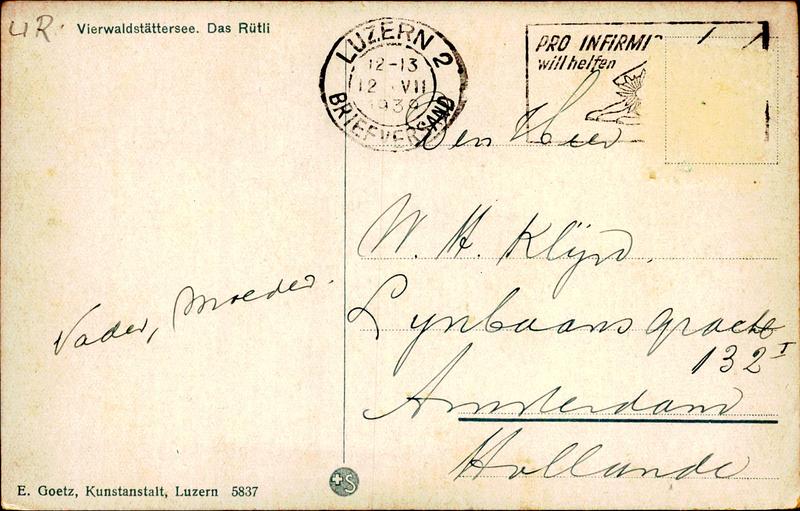 UR.
Vierwaldstättersee. Das Rütli
LUZERN 2
12-13
12 VII
1939
BRIEFVERSAND
PRO INFIRMI
will helfen
Den Heer
W. H. Klijn.
Lynbaansgracht
132 I
Amsterdam
Hollande
Vader, Moeder.
E. Goetz, Kunstanstalt, Luzern 5837
S